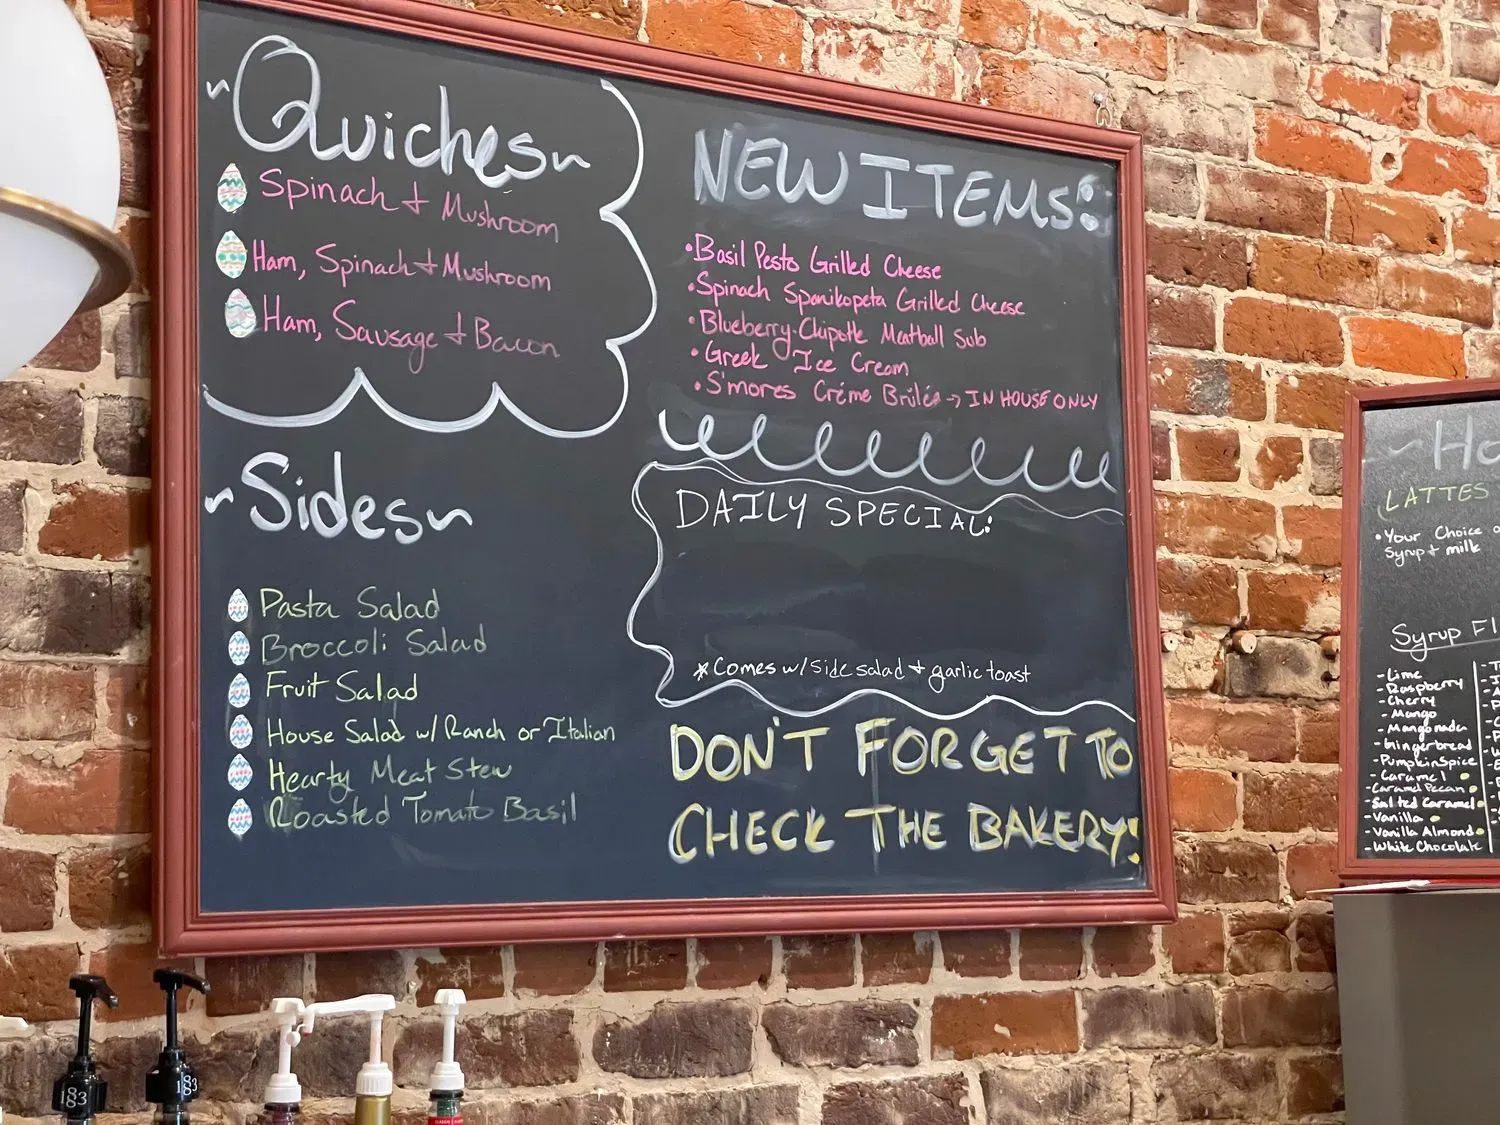 ~Quiches~
Spinach + Mushroom
Ham, Spinach + Mushroom
Ham, Sausage + Bacon
~Sides~
Pasta Salad
Broccoli Salad
Fruit Salad
House Salad w/ Ranch or Italian
Hearty Meat Stew
Roasted Tomato Basil
NEW ITEMS:
•Basil Pesto Grilled Cheese
•Spinach Spanikopeta Grilled Cheese
•Blueberry-Chipotle Meatball Sub
•Greek Ice Cream
•S'mores Créme Brûlée → IN HOUSE ONLY
DAILY SPECIAL:
*Comes w/ side salad + garlic toast
DON'T FORGET TO
CHECK THE BAKERY!
~Ho
LATTES
•Your Choice o
Syrup + milk
Syrup Fl
-Lime
-Raspberry
-Cherry
-Mango
-Mangonada
-Gingerbread
-Pumpkin Spice
-Caramel
-Caramel Pecan
-Salted Caramel
-Vanilla
-Vanilla Almond
-White Chocolate
1883
1883